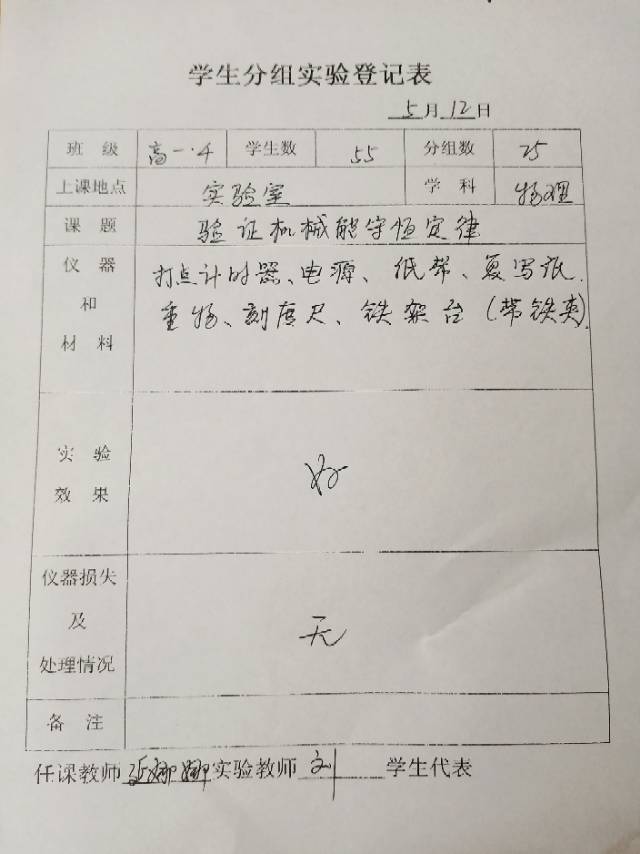 学生分组实验登记表
5月12日
班级 高一.4 学生数 55 分组数 25
上课地点 实验室 学科 物理
课题 验证机械能守恒定律
仪器和材料 打点计时器、电源、纸带、复写纸、
重物、刻度尺、铁架台(带铁夹)
实验效果 好
仪器损失及处理情况 无
备注
任课教师 娜娜 实验教师 刘 学生代表